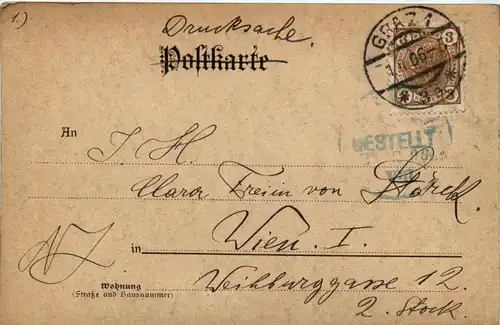 1.)
Drucksache.
Postkarte
GRAZ 1
3 3
BESTELLT
An I. H.
Clara Freiin von Störck.
in Wien. I.
Wohnung Weihburggasse 12.
(Straße und Hausnummer)
2. Stock.